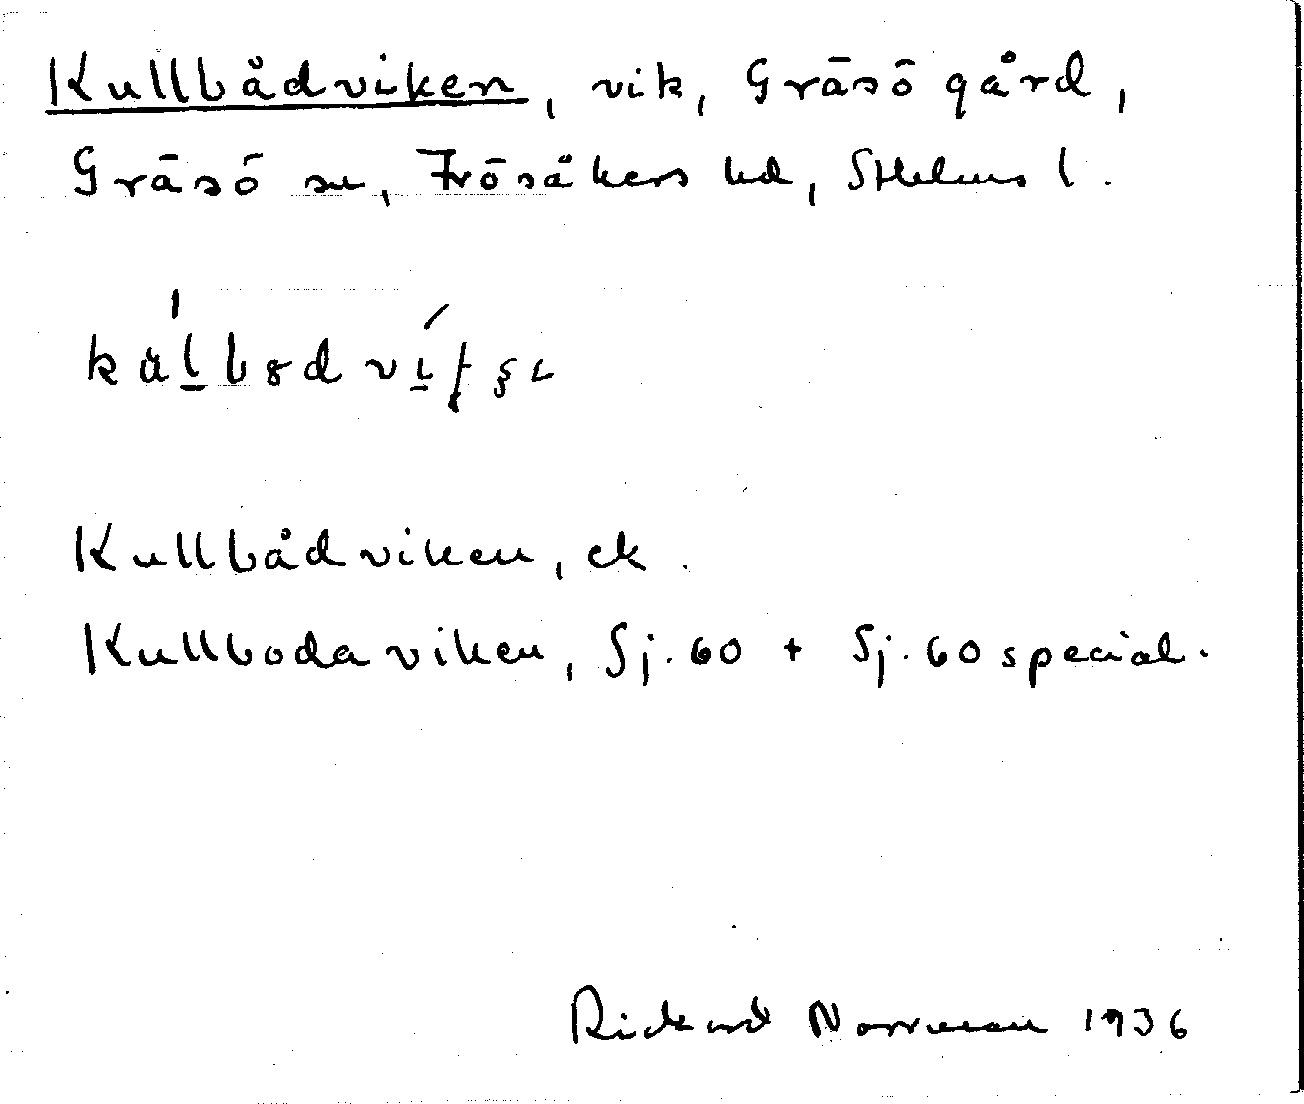 Kullbådviken, vik, Gräsö gård,
Gräsö sn, Frösåkers hd, Sthlms l.
Kullbådviken, ek.
Kullbodaviken, Sj. 60 + Sj. 60 special.
Rickard Norrman 1936